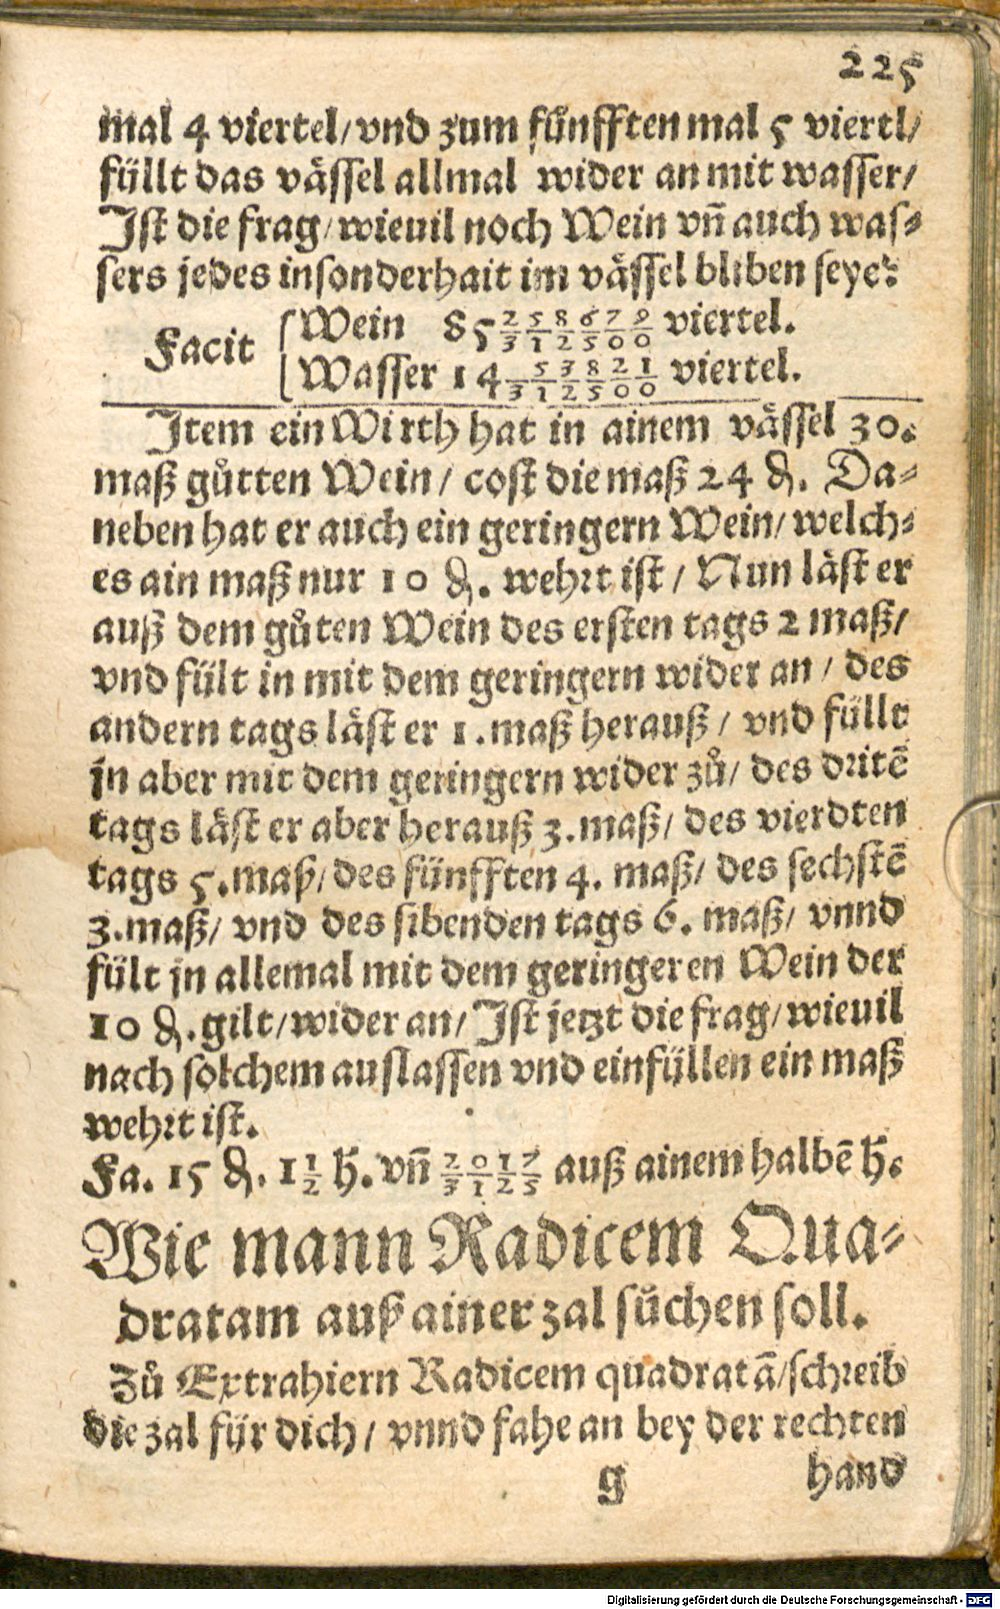 225
mal 4 viertel/vnd zum fünfften mal 5 viertl/
füllt das vässel allmal wider an mit wasser/
Ist die frag/wieuil noch Wein vñ auch was⸗
sers jedes insonderhait im vässel bliben seye?
Facit Wein 85 258679/312500 viertel.
Wasser 14 53821/312500 viertel.
Item ein Wirth hat in ainem vässel 30.
maß gůtten Wein/ cost die maß 24 ₰. Da⸗
neben hat er auch ein geringern Wein/ welch⸗
es ain maß nur 10 ₰. wehrt ist/ Nun läst er
auß dem gůten Wein des ersten tags 2 maß/
vnd fült in mit dem geringern wider an/ des
andern tags läst er 1. maß herauß/ vnd füllt
jn aber mit dem geringern wider zů/ des dritē
tags läst er aber herauß 3. maß/ des vierdten
tags 5. maß/ des fünfften 4. maß/ des sechstē
3. maß/ vnd des sibenden tags 6. maß/ vnnd
fült jn allemal mit dem geringeren Wein der
10 ₰. gilt/wider an/ Ist jetzt die frag/ wieuil
nach solchem auslassen vnd einfüllen ein maß
wehrt ist.
Fa. 15 ₰. 1 1/2 h̄. vñ 2017/3125 auß ainem halbē h̄.
Wie mann Radicem Qua⸗
dratam auß ainer zal sůchen soll.
Zů Extrahiern Radicem quadratā/schreib
die zal für dich/ vnnd fahe an bey der rechten
g hand
Digitalisierung gefördert durch die Deutsche Forschungsgemeinschaft - DFG